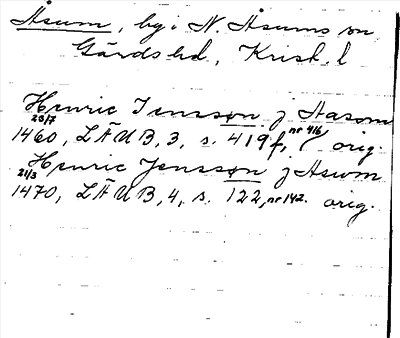 Åsum, by i N. Åsums sn
Gärds hd, Krist. l
Henric Jensson j Aasom
23/7 1460, LÄUB, 3, s. 419f, nr 416 orig.
Henric Jensson j Aswm
21/3 1470, LÄUB, 4, s. 122, nr 142. orig.